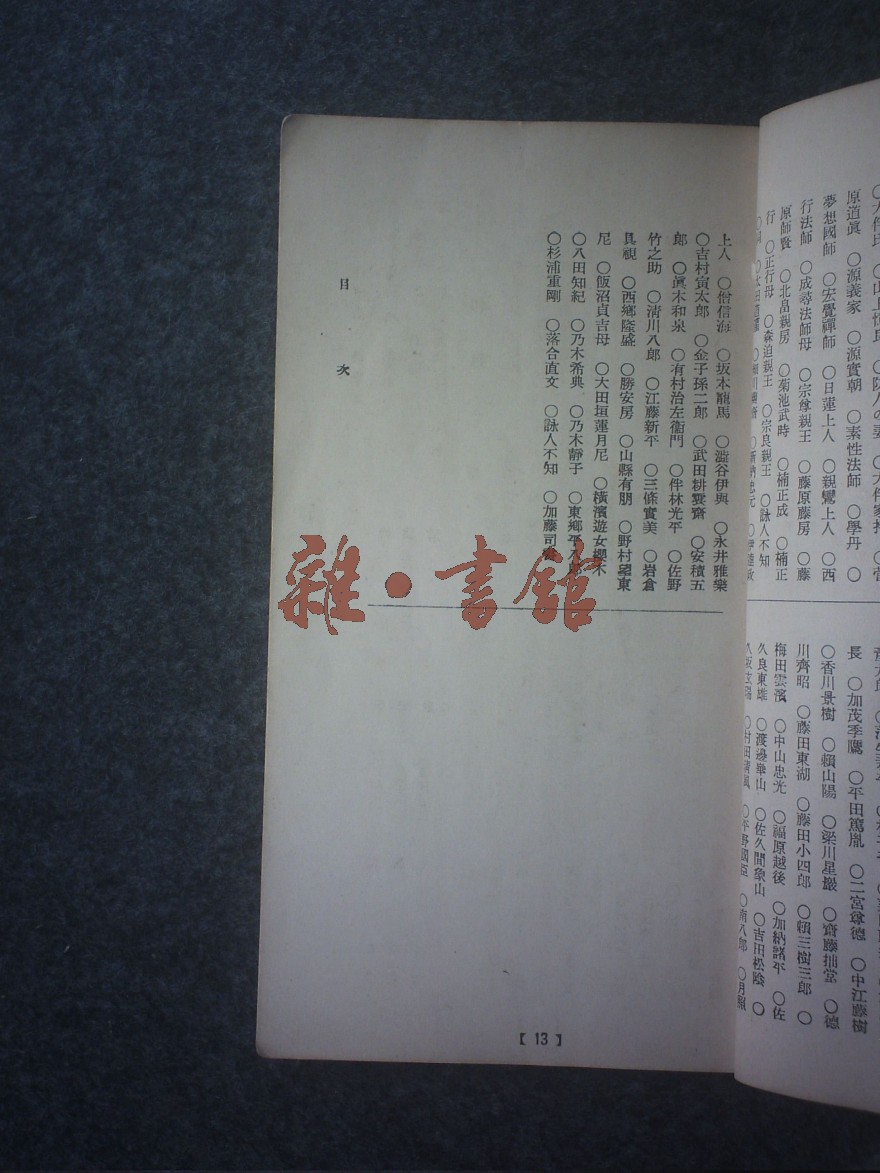 原道眞　○源義家　○源實朝　○素性法師　○學丹　○
夢想國師　○宏覺禪師　○日蓮上人　○親鸞上人　○西
行法師　○成尋法師母　○宗尊親王　○藤原藤房　○藤
原師賢　○北畠親房　○菊池武時　○楠正成　○楠正
行　○正行母　○森迫親王　○宗良親王　○詠人不知
長　○加茂季鷹　○平田篤胤　○二宮尊德　○中江藤樹
○香川景樹　○賴山陽　○梁川星巖　○齋藤拙堂　○德
川齊昭　○藤田東湖　○藤田小四郎　○賴三樹三郎　○
梅田雲濱　○中山忠光　○福原越後　○加納諸平　○佐
久良東雄　○渡邊崋山　○佐久間象山　○吉田松陰　○
○村田淸風　○平野國臣　○南八郎　○月照
上人　○僧信海　○坂本龍馬　○澁谷伊與　○永井雅樂
○吉村寅太郎　○金子孫二郎　○武田耕雲齋　○安積五
郎　○眞木和泉　○有村治左衞門　○伴林光平　○佐野
竹之助　○淸川八郎　○江藤新平　○三條實美　○岩倉
具視　○西鄕隆盛　○勝安房　○山縣有朋　○野村望東
尼　○飯沼貞吉母　○大田垣蓮月尼　○橫濱遊女櫻木
○八田知紀　○乃木希典　○乃木靜子　○東鄕平八郎
○杉浦重剛　○落合直文　○詠人不知　○加藤司書
目次
【13】
雜・書館